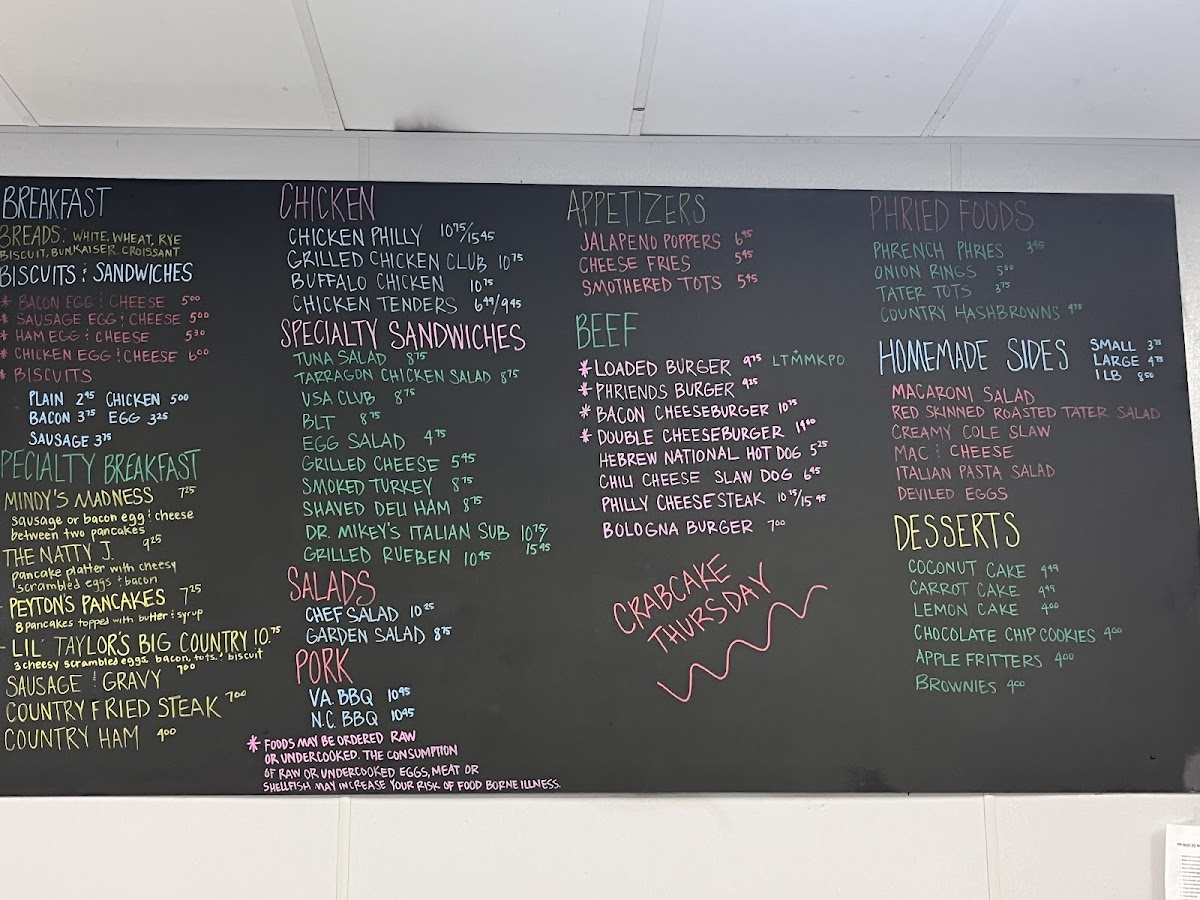 BREAKFAST
BREADS: WHITE, WHEAT, RYE
BISCUIT, BUN, KAISER, CROISSANT
BISCUITS & SANDWICHES
* BACON EGG & CHEESE 5.00
* SAUSAGE EGG & CHEESE 5.00
* HAM EGG & CHEESE 5.30
* CHICKEN EGG & CHEESE 6.00
* BISCUITS
PLAIN 2.45 CHICKEN 5.00
BACON 3.75 EGG 3.25
SAUSAGE 3.75
PECIALTY BREAKFAST
MINDY'S MADNESS 7.25
sausage or bacon egg & cheese
between two pancakes
THE NATTY J. 9.25
pancake platter with cheesy
scrambled eggs & bacon
PEYTON'S PANCAKES 7.25
8 pancakes topped with butter & syrup
LIL' TAYLOR'S BIG COUNTRY 10.75
3 cheesy scrambled eggs, bacon, tots, & biscuit
SAUSAGE & GRAVY 7.00
COUNTRY FRIED STEAK 7.00
COUNTRY HAM 4.00
CHICKEN
CHICKEN PHILLY 10.75/15.45
GRILLED CHICKEN CLUB 10.75
BUFFALO CHICKEN 10.75
CHICKEN TENDERS 6.49/9.45
SPECIALTY SANDWICHES
TUNA SALAD 8.75
TARRAGON CHICKEN SALAD 8.75
USA CLUB 8.75
BLT 8.75
EGG SALAD 4.75
GRILLED CHEESE 5.45
SMOKED TURKEY 8.75
SHAVED DELI HAM 8.75
DR. MIKEY'S ITALIAN SUB 10.75/
15.45
GRILLED RUEBEN 10.45
SALADS
CHEF SALAD 10.25
GARDEN SALAD 8.75
PORK
VA. BBQ 10.45
N.C. BBQ 10.45
* FOODS MAY BE ORDERED RAW
OR UNDERCOOKED. THE CONSUMPTION
OF RAW OR UNDERCOOKED EGGS, MEAT OR
SHELLFISH MAY INCREASE YOUR RISK OF FOOD BORNE ILLNESS.
APPETIZERS
JALAPENO POPPERS 6.45
CHEESE FRIES 5.45
SMOTHERED TOTS 5.45
BEEF
* LOADED BURGER 9.75 LTMMKPO
* PHRIENDS BURGER 9.25
* BACON CHEESEBURGER 10.75
* DOUBLE CHEESEBURGER
HEBREW NATIONAL HOT DOG 5.25
CHILI CHEESE SLAW DOG 6.45
PHILLY CHEESESTEAK 10.75/15.45
BOLOGNA BURGER 7.00
CRABCAKE
THURSDAY
PHRIED FOODS
PHRENCH PHRIES 3.45
ONION RINGS 5.00
TATER TOTS 3.75
COUNTRY HASHBROWNS 4.75
HOMEMADE SIDES
SMALL 3.75
LARGE 4.75
1LB 8.50
MACARONI SALAD
RED SKINNED ROASTED TATER SALAD
CREAMY COLE SLAW
MAC & CHEESE
ITALIAN PASTA SALAD
DEVILED EGGS
DESSERTS
COCONUT CAKE 4.99
CARROT CAKE 4.95
LEMON CAKE 4.00
CHOCOLATE CHIP COOKIES 4.00
APPLE FRITTERS 4.00
BROWNIES 4.00